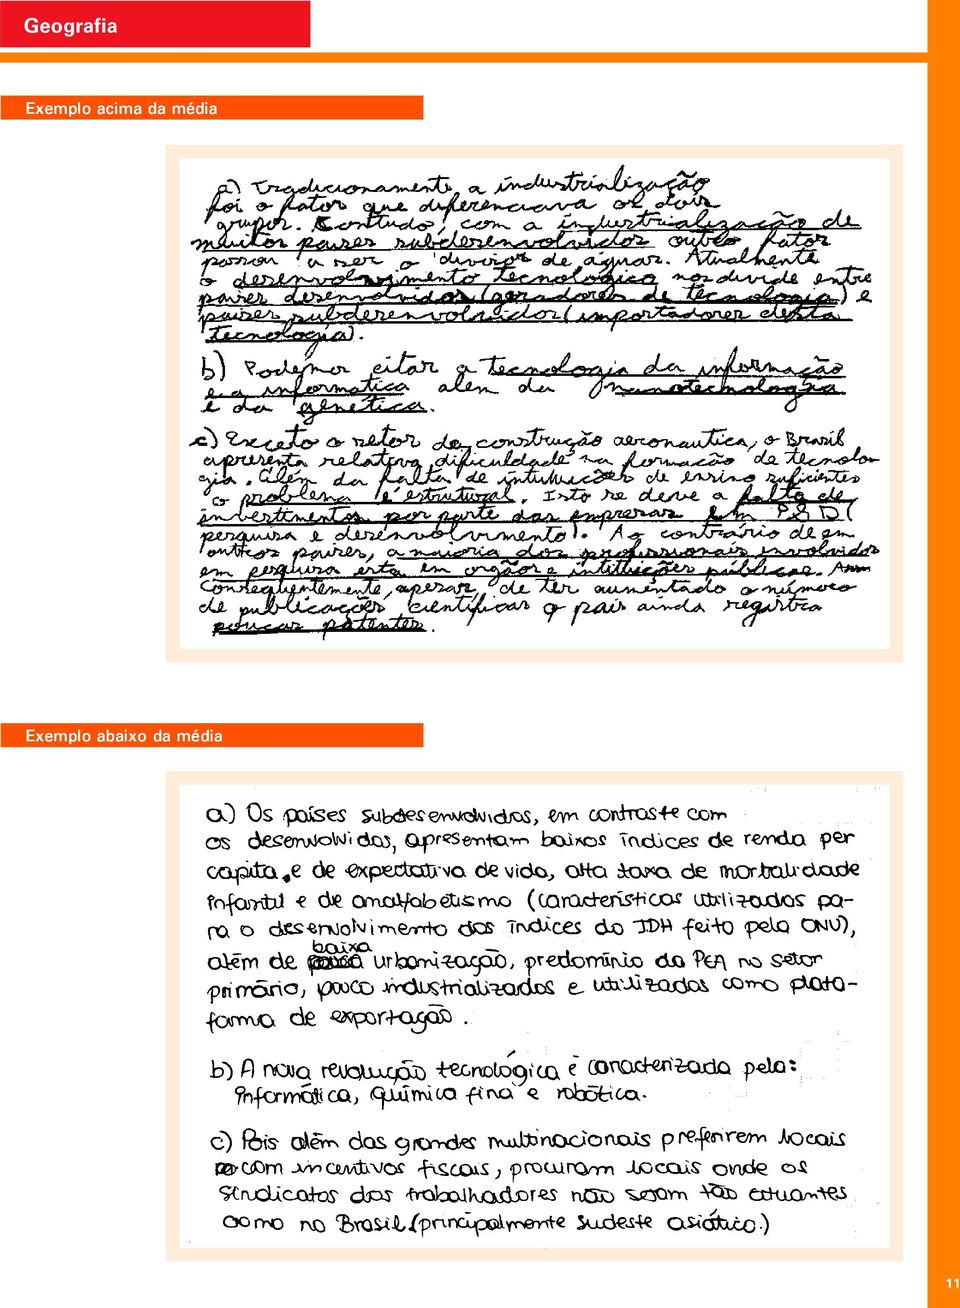 Geografia
Exemplo acima da média
a) Tradicionamente a industrialização
foi o fator que diferenciava os dois
grupos. Contudo, com a industrialização de
muitos paises subdesenvolvidos outro fator
passou a ser o divisor de águas. Atualmente
o desenvolvimento tecnológico nos divide entre
paises desenvolvidos (geradores de tecnologia) e
paises subdesenvolvidos (importadores desta
tecnologia).
b) Podemos citar a tecnologia da informação
e a informatica alem da nanotecnologia
e da genética.
c) Exceto o setor de construção aeronautica, o Brasil
apresenta relativa dificuldade na formação de tecnolo
gia. Além da falta de intituições de ensino suficientes
o problema é estrutural. Isto se deve a falta de
investimentos por parte das empresas em P&D (
pesquisa e desenvolvimento). Ao contrário de em
outros paises, a maioria dos profissionais involvidos
em pesquisa esta em orgãos e intituições públicas.
Consequentemente, apesar de ter aumentado o número
de publicações cientificas o pais ainda registra
poucas patentes.
Exemplo abaixo da média
a) Os países subdesenvolvidos, em contraste com
os desenvolvidos, apresentam baixos índices de renda per
capita, e de expectativa de vida, alta taxa de mortalidade
infantil e de analfabetismo (características utilizadas pa-
ra o desenvolvimento dos índices do IDH feito pela ONU),
além de baixa urbanização, predomínio da PEA no setor
primário, pouco industrializados e utilizados como plata-
forma de exportação.
b) A nova revolução tecnológica é caracterizada pela:
Informática, química fina e robótica.
c) Pois além das grandes multinacionais preferirem locais
com incentivos fiscais, procuram locais onde os
sindicatos dos trabalhadores não sejam tão atuantes
como no Brasil. (principalmente sudeste asiático.)
11